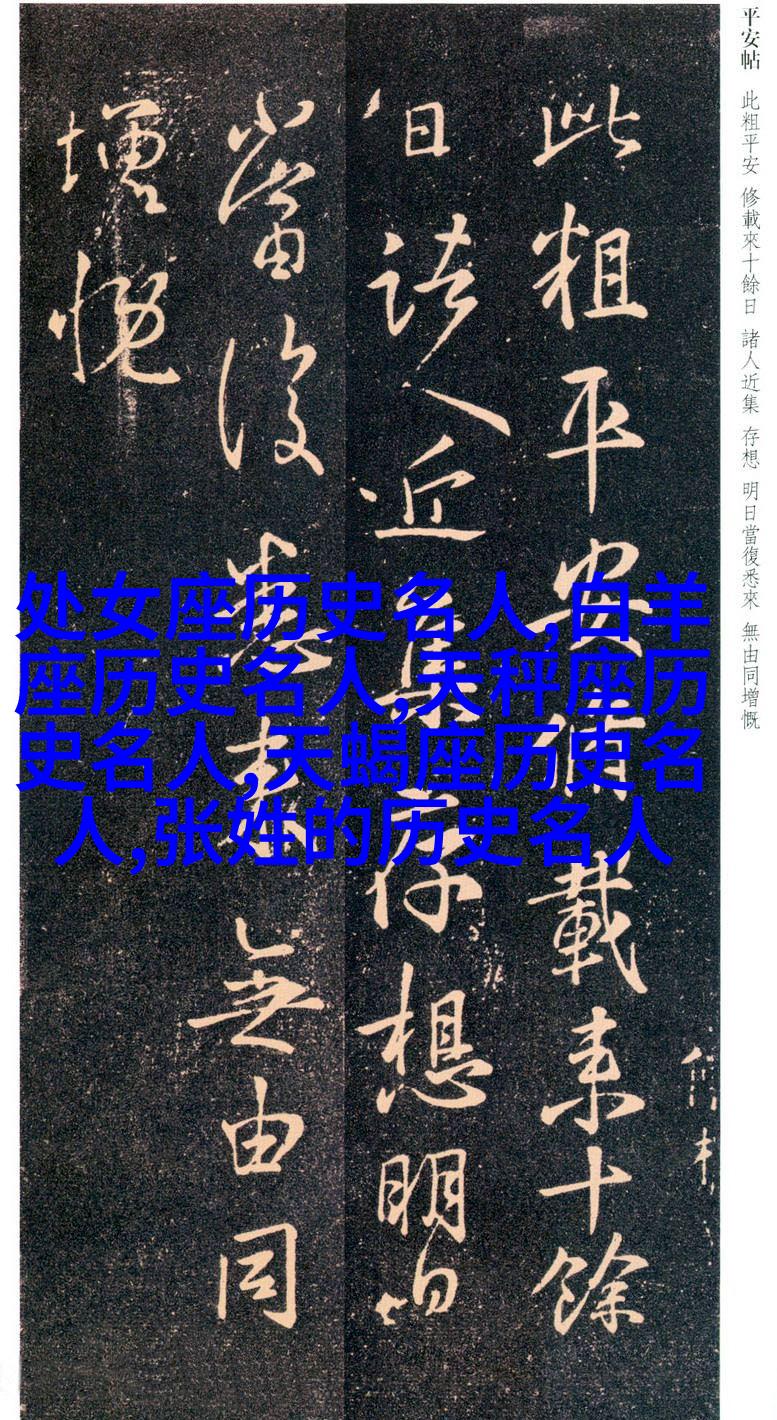 平安帖 此粗平安 修載來十餘日 諸人近集 存想 明日當復悉來 無由同增慨
此粗平安脩載來十餘
日諸人近集存想明日
當復悉來無由同
增慨
处女座历史名人,白羊
座历史名人,天秤座历
史名人,天蝎座历史名
人,张姓的历史名人